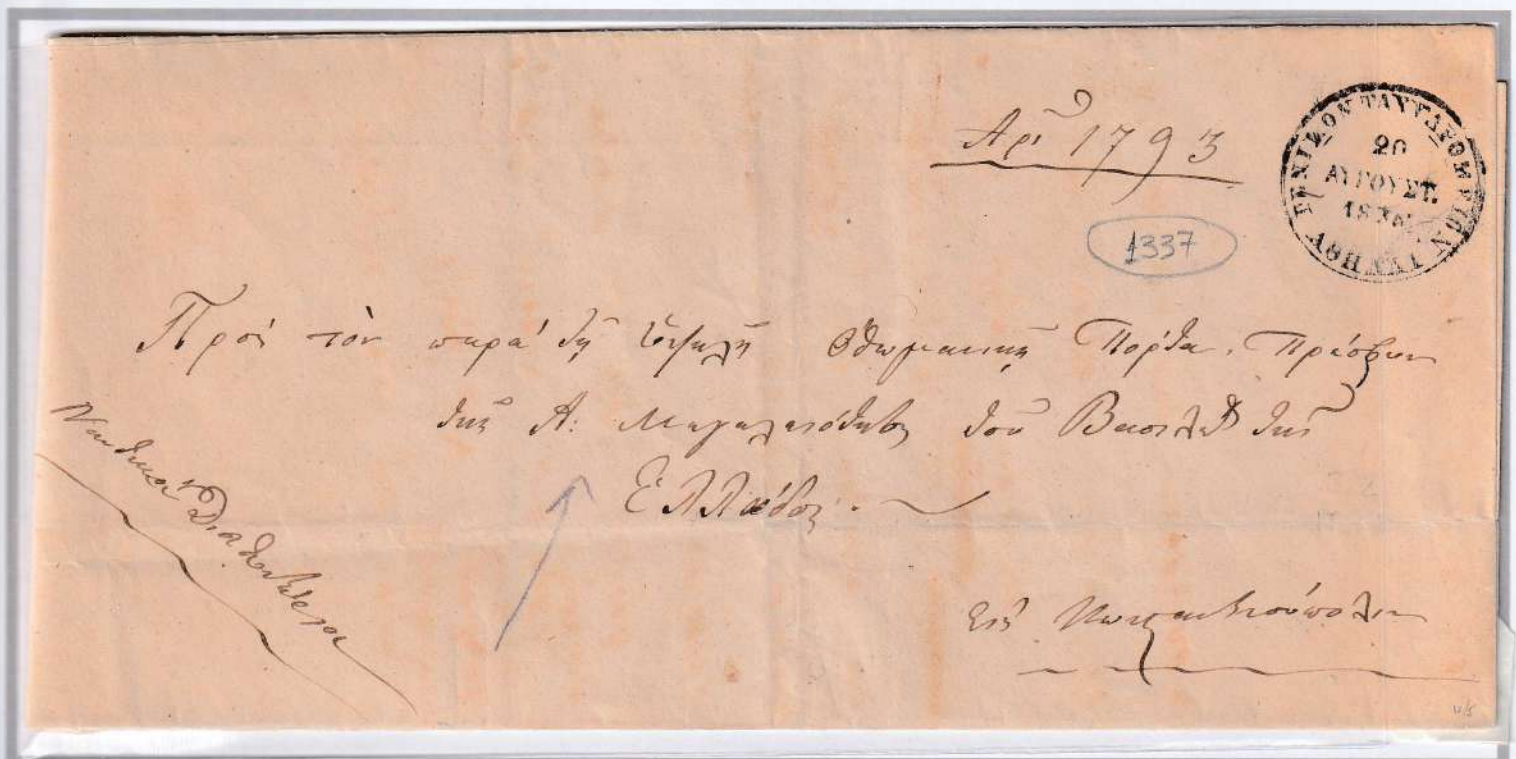 Αρι 1793
ΓΕΝΙΚΟΝ ΤΑΧΥΔΡΟΜΕΙΟΝ
20
ΑΥΓΟΥΣΤ.
ΑΘΗΝΑΙ
1337
Πρὸς τὸν παρὰ τῇ Ὑψηλῇ Ὀθωμανικῇ Πόρτᾳ Πρέσβυν
τῆς Α: Μεγαλειότητος τοῦ Βασιλέως τῆς
Ἑλλάδος.
Εἰς Κωνσταντινούπολιν